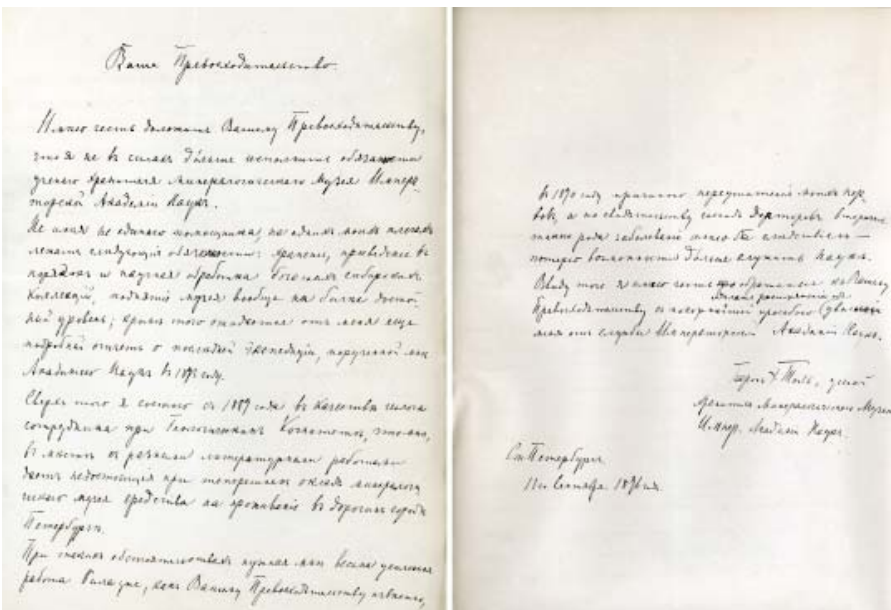 Ваше Превосходительство.
Имею честь доложить Вашему Превосходительству,
что я не в силах больше исполнять обязанности
ученого хранителя минералогического Музея Импера-
торской Академии Наук.
Не имея ни единого помощника, на одних моих плечах
лежат следующие обязанности: хранение, приведение в
порядок и научная обработка богатых сибирских
коллекций, поднятие музея вообще на более достой-
ный уровень; кроме того ожидается от меня еще
подробный отчет о последней экспедиции, порученной мне
Академиею Наук в 1893 году.
Сверх того я состою с 1889 года в качестве
сотрудника при Геологическом Комитете, что мне,
в месте с разными литературными работами
дает недостающия при теперешнем окладе минералоги-
ческого музея средства на проживание в дорогом городе
Петербурге.
При таких обстоятельствах нужная мне весьма усиленная
работа была уже, как Вашему Превосходительству известно,
в 1890 году причиною переутомления моих нер-
вов, а по свидетельству докторов вторичное
такого рода заболевание имело бы следствием —
потерю возможности дальше служить Науке.
Ввиду того я имею честь обратиться к Вашему
Превосходительству с покорнейшей просьбою
меня от службы Императорской Академии Наук.
Барон Э Толь, ученый
хранитель Минералогического Музея
Импер. Академии Наук.
Ст. Петербург.
Сентября 1896